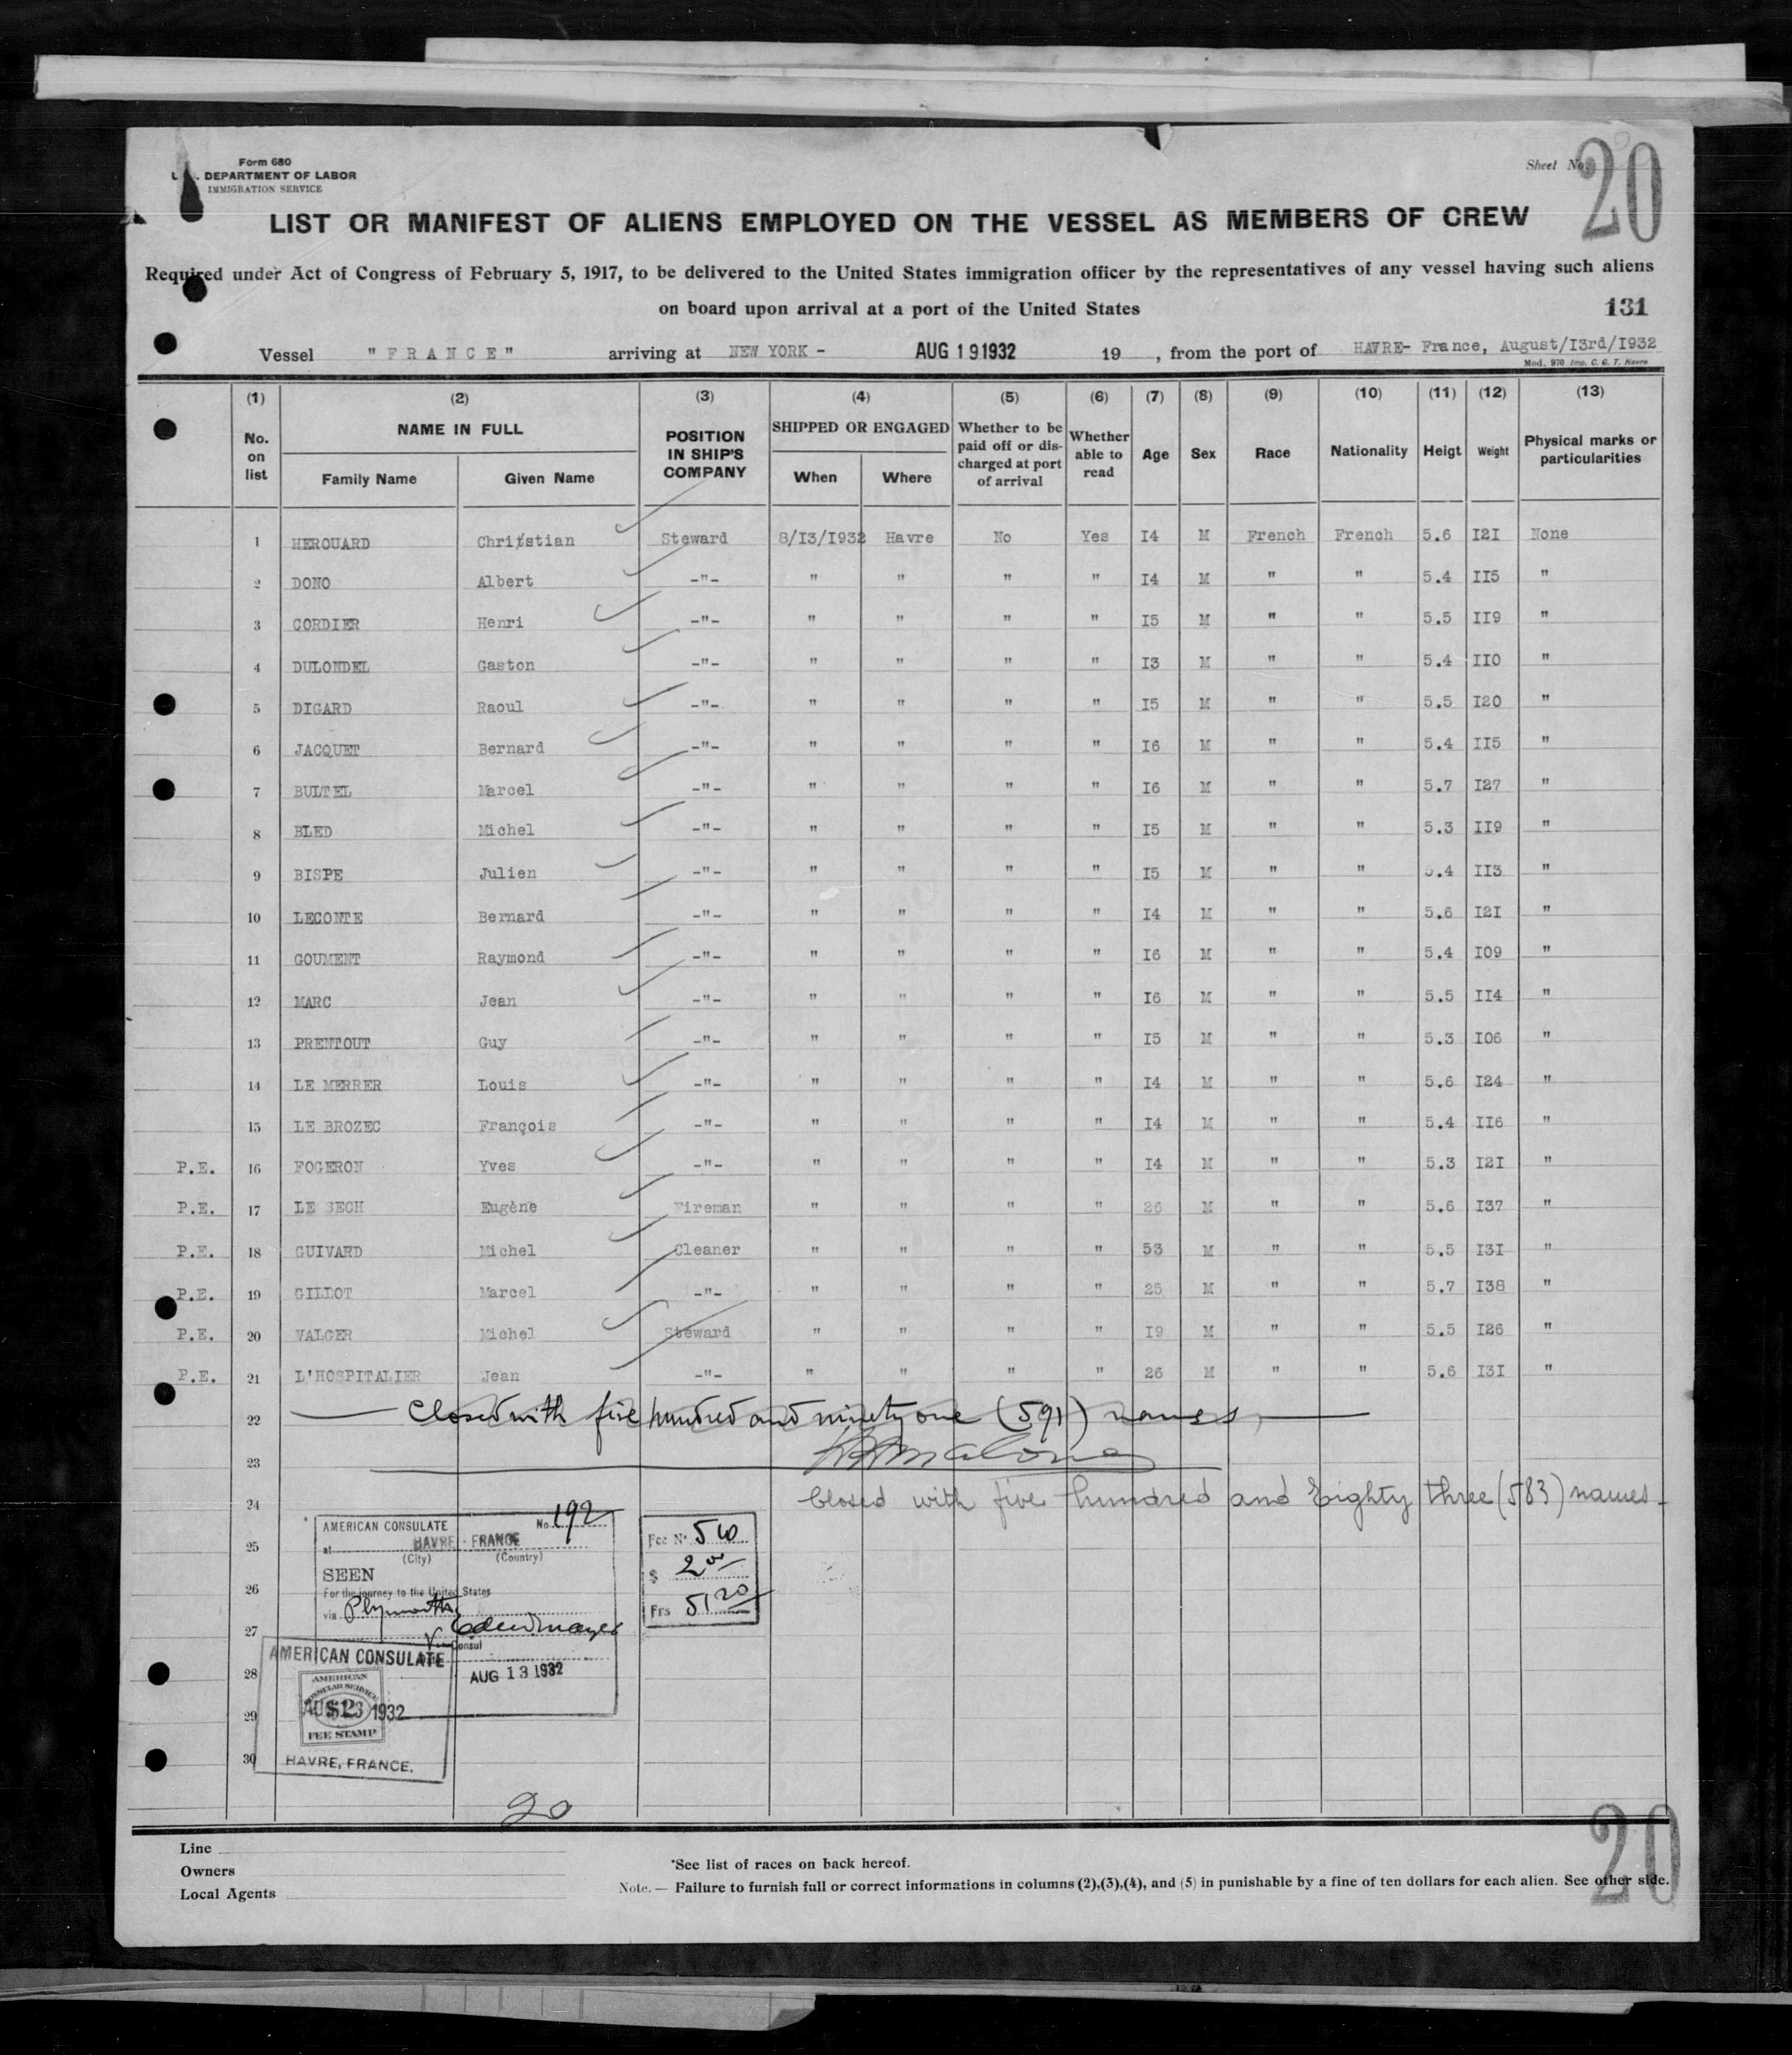 Form 680
DEPARTMENT OF LABOR
IMMIGRATION SERVICE
Sheet No. 20
LIST OR MANIFEST OF ALIENS EMPLOYED ON THE VESSEL AS MEMBERS OF CREW
Required under Act of Congress of February 5, 1917, to be delivered to the United States immigration officer by the representatives of any vessel having such aliens
on board upon arrival at a port of the United States
131
Vessel "FRANCE" arriving at NEW YORK - AUG 19 1932 19 , from the port of HAVRE- France, August/I3rd/I932
Mod. 970 Imp. C. G. T. Havre
(1) (2) (3) (4) (5) (6) (7) (8) (9) (10) (11) (12) (13)
No. on list NAME IN FULL Family Name Given Name POSITION IN SHIP'S COMPANY SHIPPED OR ENGAGED When Where Whether to be paid off or discharged at port of arrival Whether able to read Age Sex Race Nationality Heigt Weight Physical marks or particularities
1 HEROUARD Christian Steward 8/I3/I932 Havre No Yes I4 M French French 5.6 I2I None
2 DONO Albert -"- " " " " I4 M " " 5.4 II5 "
3 CORDIER Henri -"- " " " " I5 M " " 5.5 II9 "
4 DULONDEL Gaston -"- " " " " I3 M " " 5.4 II0 "
5 DIGARD Raoul -"- " " " " I5 M " " 5.5 I20 "
6 JACQUET Bernard -"- " " " " I6 M " " 5.4 II5 "
7 BULTEL Marcel -"- " " " " I6 M " " 5.7 I27 "
8 BLED Michel -"- " " " " I5 M " " 5.3 II9 "
9 BISPE Julien -"- " " " " I5 M " " 5.4 II3 "
10 LECONTE Bernard -"- " " " " I4 M " " 5.6 I2I "
11 GOUMENT Raymond -"- " " " " I6 M " " 5.4 I09 "
12 MARC Jean -"- " " " " I6 M " " 5.5 II4 "
13 PRENTOUT Guy -"- " " " " I5 M " " 5.3 I06 "
14 LE MERRER Louis -"- " " " " I4 M " " 5.6 I24 "
15 LE BROZEC François -"- " " " " I4 M " " 5.4 II6 "
P.E. 16 FOGERON Yves -"- " " " " I4 M " " 5.3 I2I "
P.E. 17 LE SECH Eugène Fireman " " " " 26 M " " 5.6 I37 "
P.E. 18 GUIVARD Michel Cleaner " " " " 53 M " " 5.5 I3I "
P.E. 19 GILLOT Marcel -"- " " " " 25 M " " 5.7 I38 "
P.E. 20 VALGER Michel Steward " " " " I9 M " " 5.5 I26 "
P.E. 21 L'HOSPITALIER Jean -"- " " " " 26 M " " 5.6 I3I "
22 Closed with five hundred and ninety one (591) names
23
24 Closed with five hundred and Eighty three (583) names -
25
26
27
28
29
30
AMERICAN CONSULATE No. 192
at HAVRE - FRANCE
(City) (Country)
SEEN
For the journey to the United States
via Plymouth
Vice Consul
AUG 13 1932
Fee No. 510
$ 2 00
Frs 51 20
AMERICAN CONSULATE
AMERICAN CONSULAR SERVICE
$2
AUG 13 1932
FEE STAMP
HAVRE, FRANCE.
20
Line
Owners
Local Agents
*See list of races on back hereof.
Note. — Failure to furnish full or correct informations in columns (2),(3),(4), and (5) in punishable by a fine of ten dollars for each alien. See other side.
20